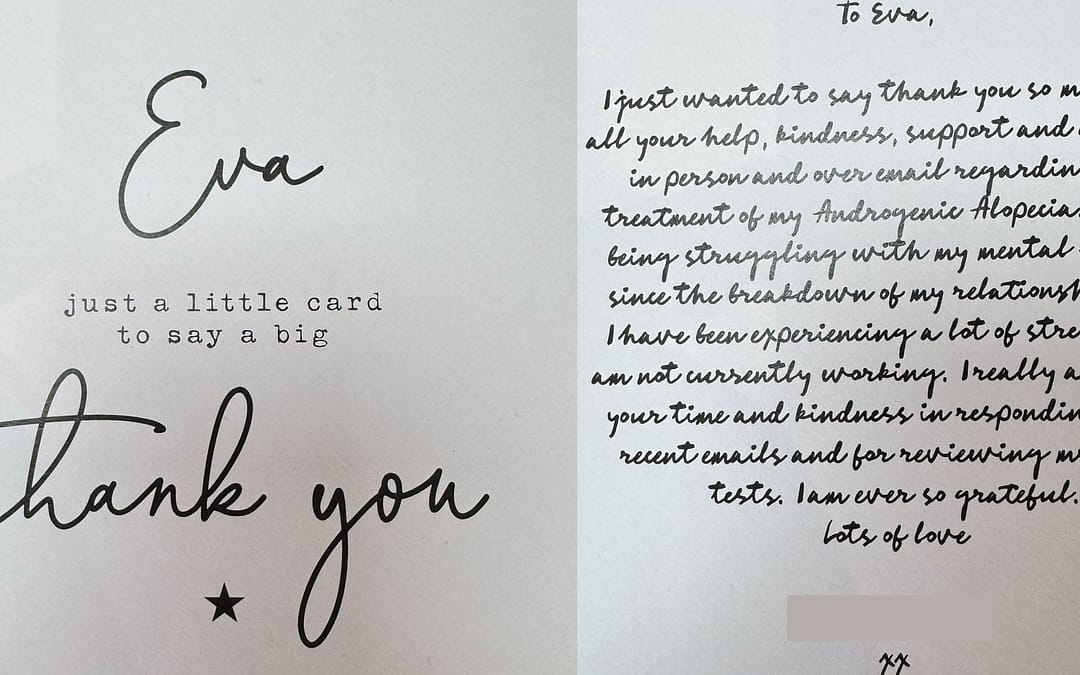 Eva
just a little card
to say a big
thank you
To Eva,
I just wanted to say thank you so
all your help, kindness, support and
in person and over email
treatment of my Androgenic Alopecia.
being struggling with my mental
since the breakdown of my
I have been experiencing a lot of
am not currently working. I really
your time and kindness in
recent emails and for reviewing
tests. I am ever so grateful.
Lots of love
xx